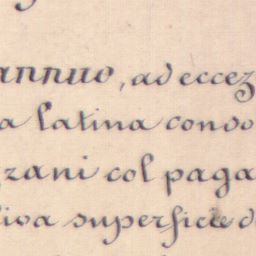 annuo, ad eccez
a latina condo
zani col paga
iva superficie d